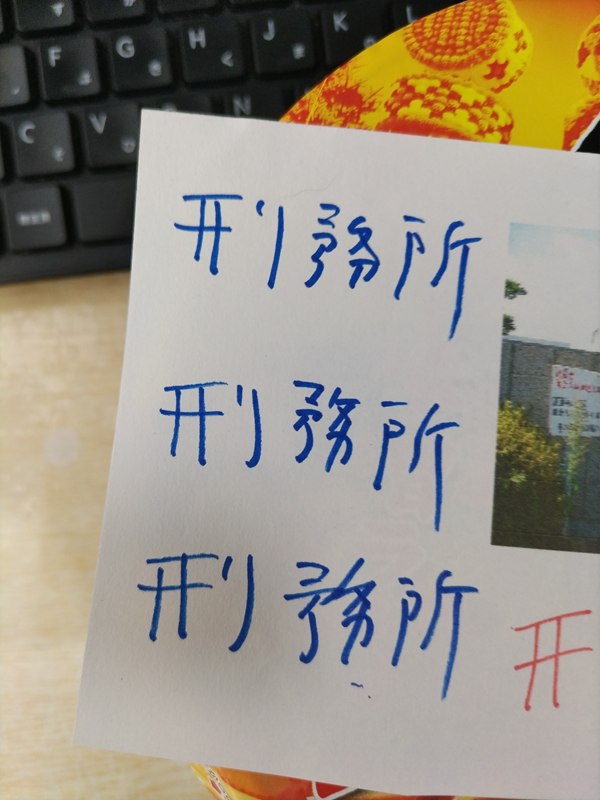 F G H J K L
C V N
刑務所
刑務所
刑務所
开